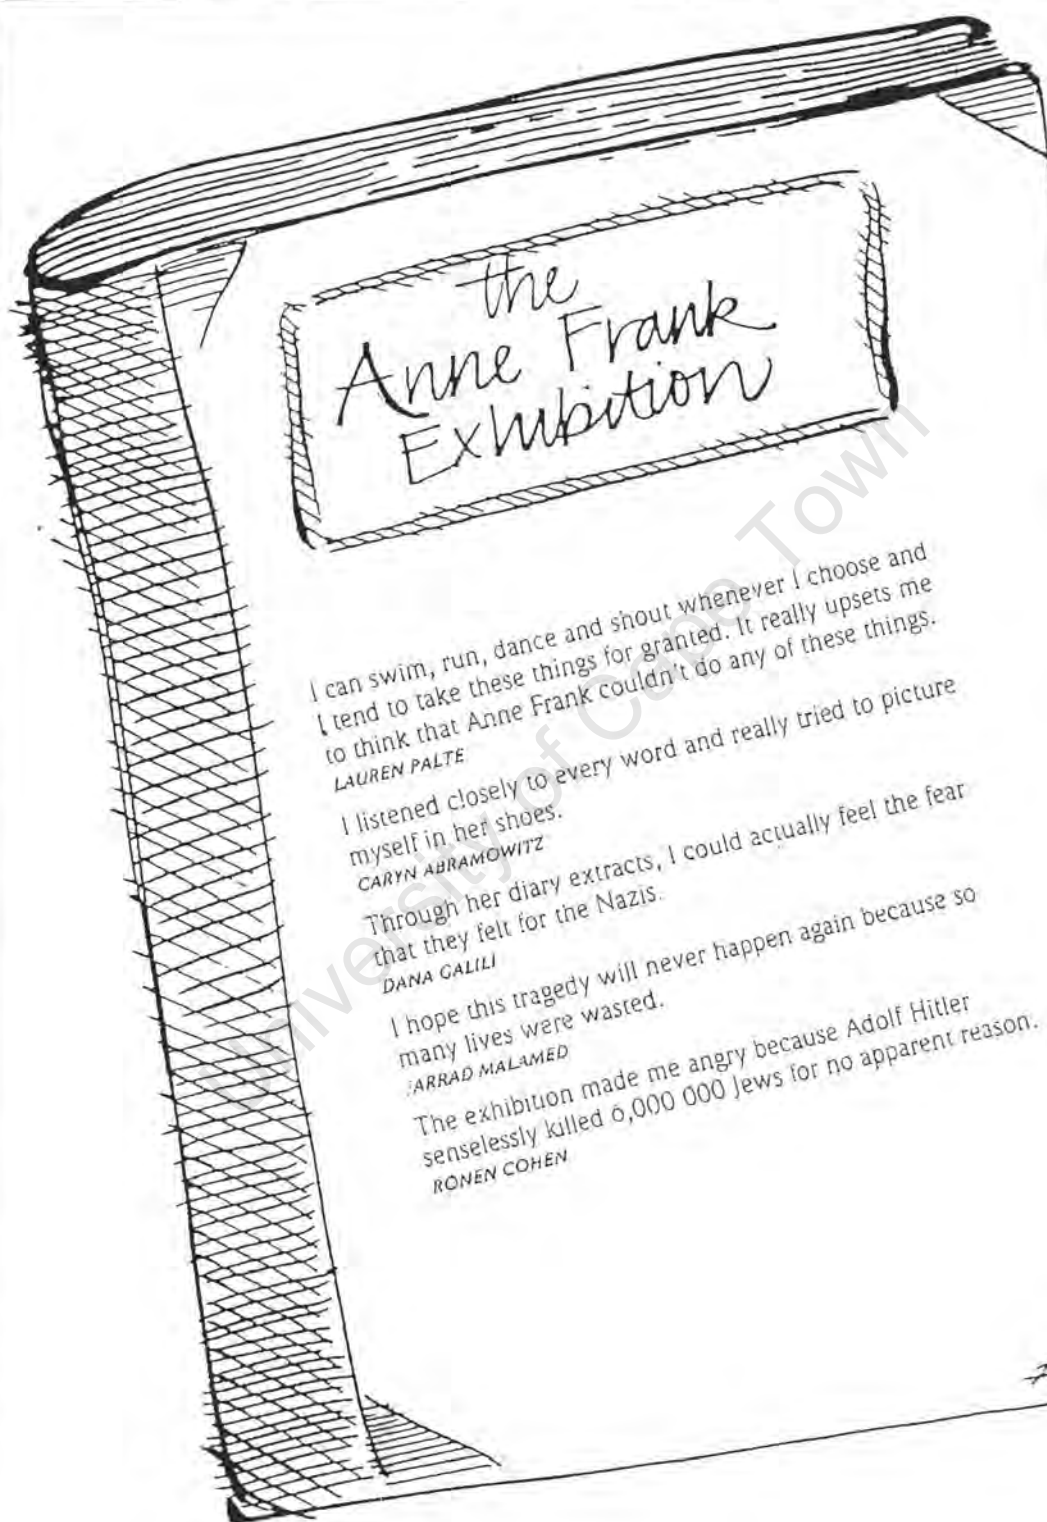 the
Anne Frank
Exhibition
I can swim, run, dance and shout whenever I choose and
I tend to take these things for granted. It really upsets me
to think that Anne Frank couldn't do any of these things.
LAUREN PALTE
I listened closely to every word and really tried to picture
myself in her shoes.
CARYN ABRAMOWITZ
Through her diary extracts, I could actually feel the fear
that they felt for the Nazis.
DANA GALILI
I hope this tragedy will never happen again because so
many lives were wasted.
ARRAD MALAMED
The exhibition made me angry because Adolf Hitler
senselessly killed 6,000 000 Jews for no apparent reason.
RONEN COHEN
University of Cape Town